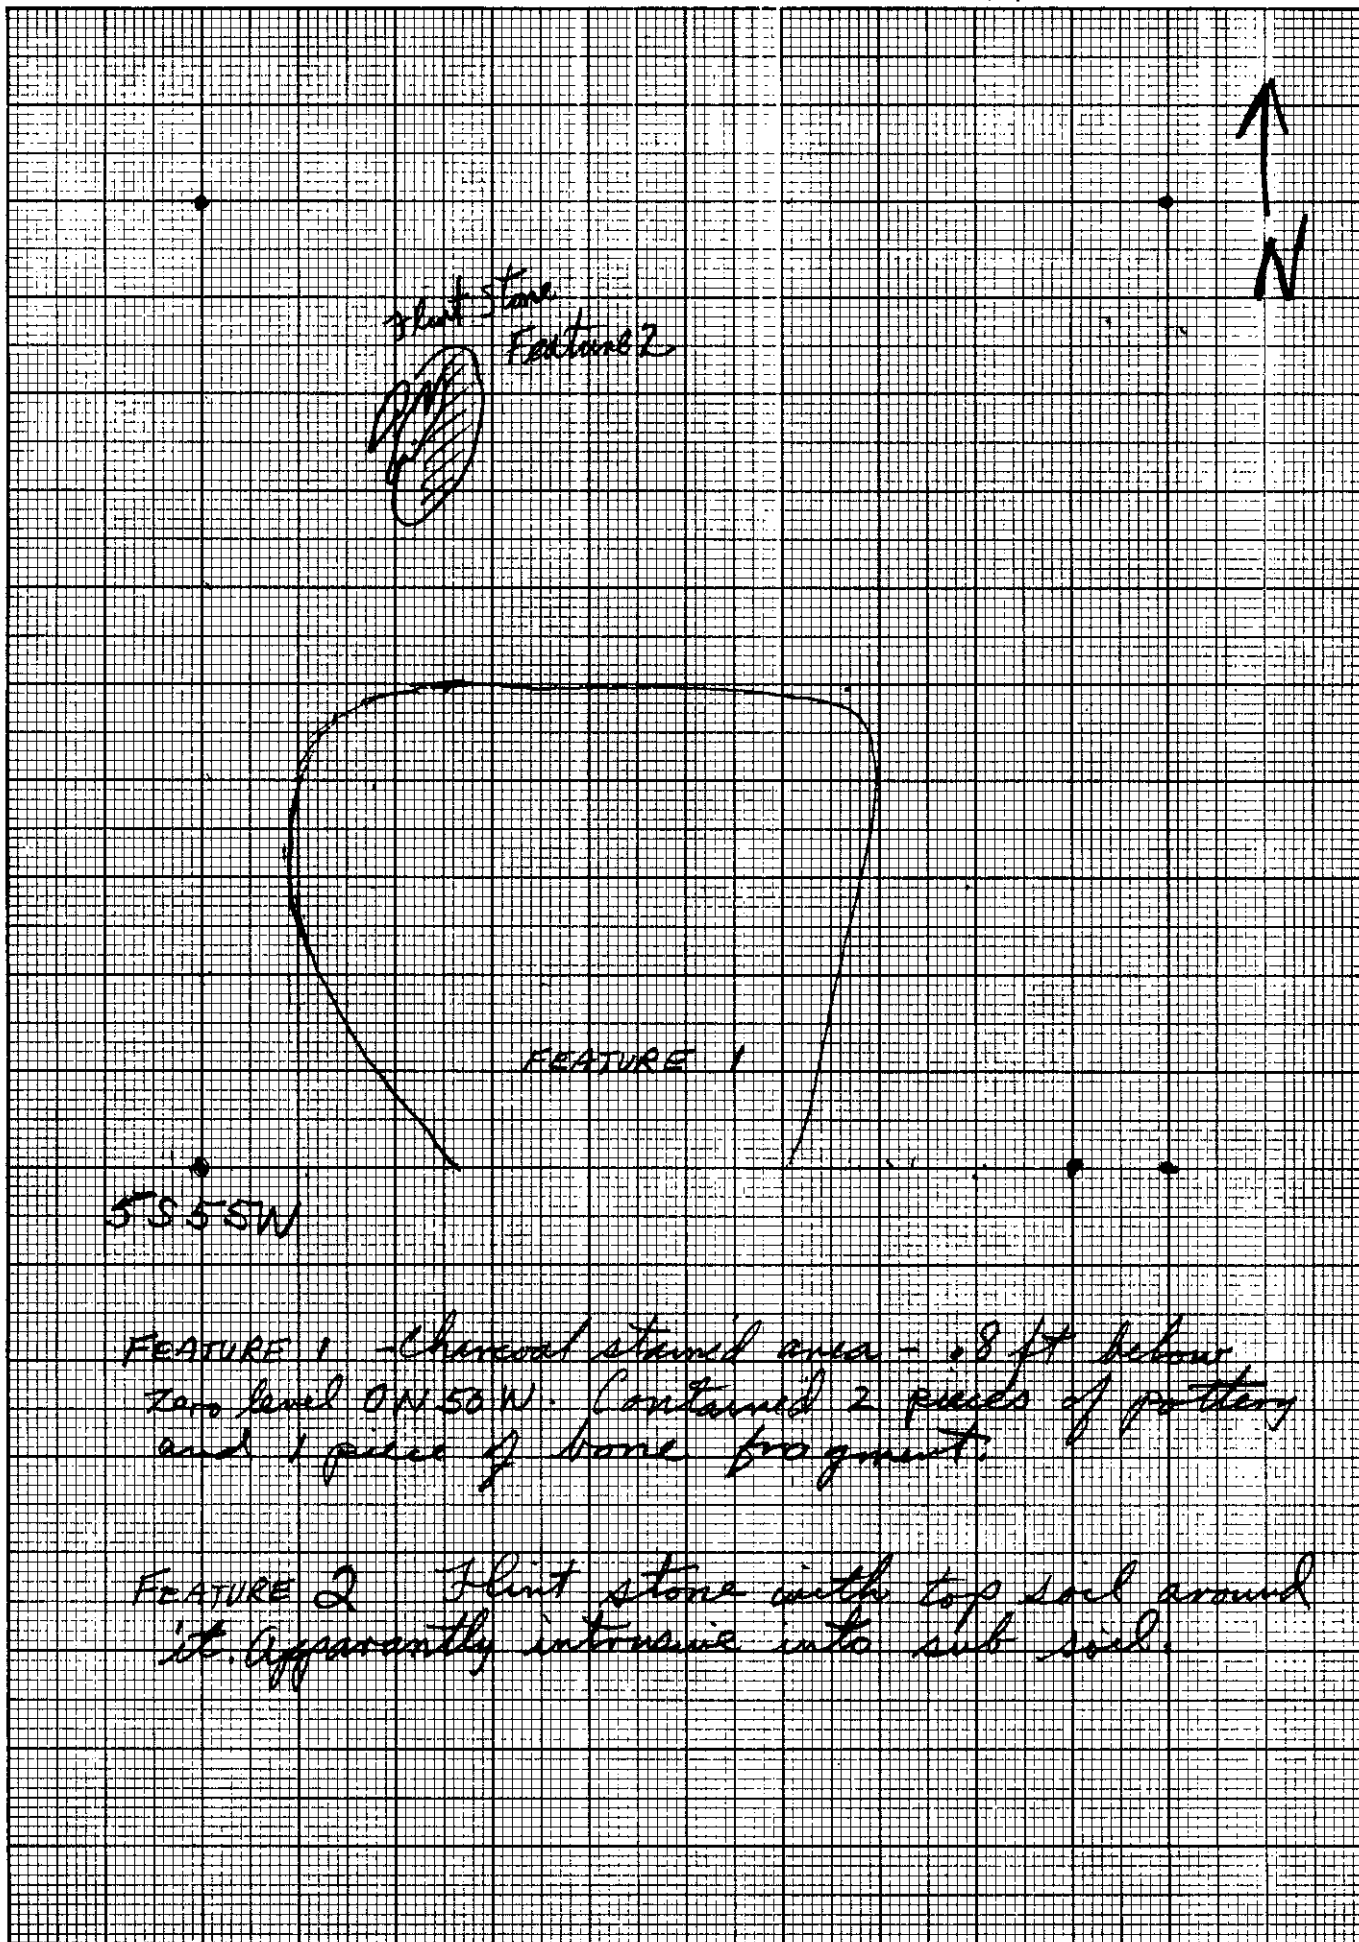 N
Flint Stone
Feature 2
FEATURE 1
5S55W
FEATURE 1 - Charcoal stained area - .8 ft below
Zero level 0N50W. Contained 2 pieces of pottery
and 1 piece of bone fragment.
FEATURE 2 Flint stone with top soil around
it. Apparantly intrusive into sub soil.